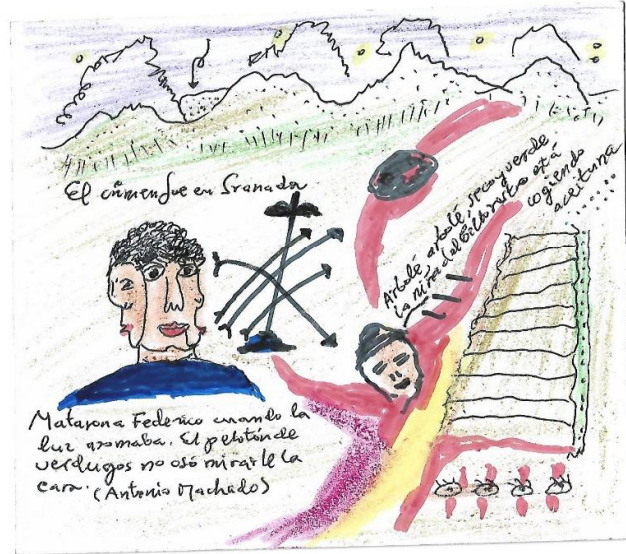 El crimen fue en Granada
Arbolé arbolé seco y verde
la niña del bello rostro está
cogiendo
aceituna
.......
Mataron a Federico cuando la
luz asomaba. El pelotón de
verdugos no osó mirarle la
cara. (Antonio Machado)